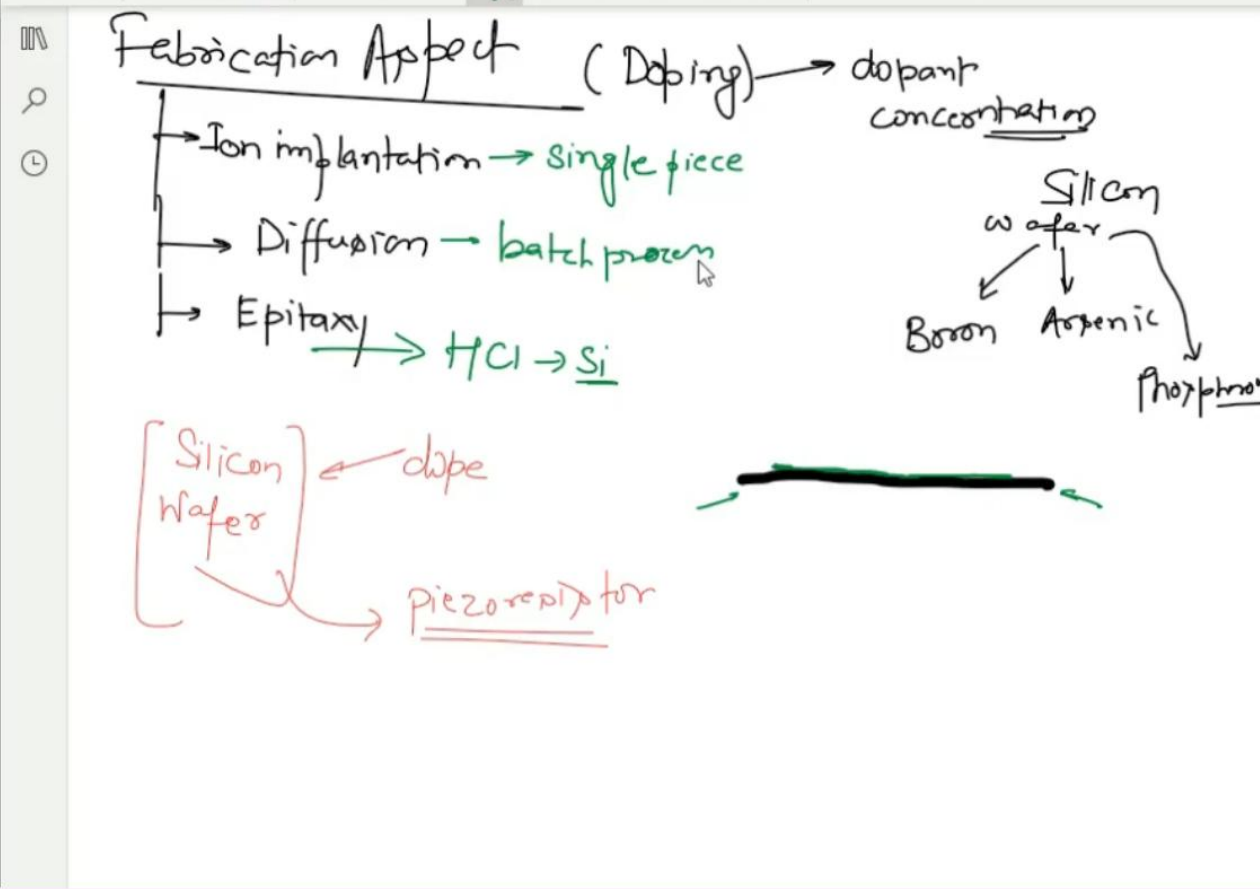 Fabrication Aspect (Doping) → dopant
concentration
→ Ion implantation → single piece
→ Diffusion — batch process
→ Epitaxy → HCl → Si
Silicon
wafer
Boron Arsenic
Silicon ← dope
Wafer
→ piezoresistor